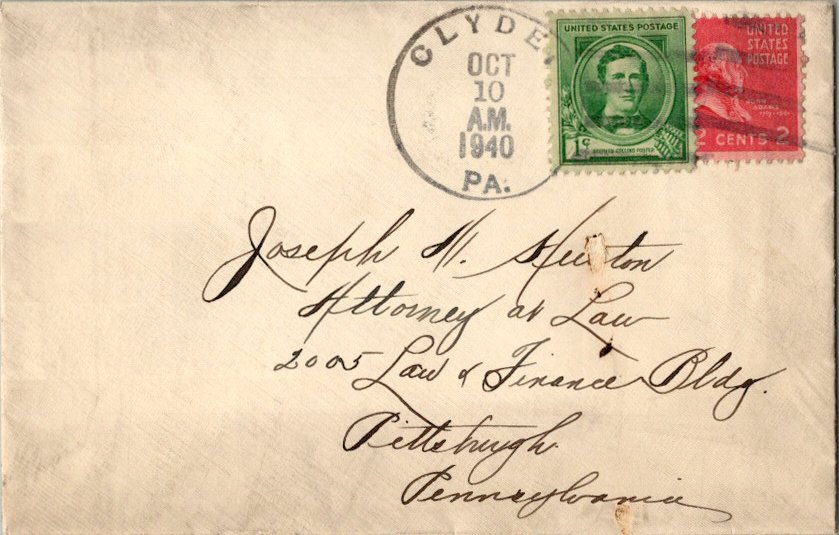 CLYDE
OCT
10
A.M.
1940
PA.
UNITED STATES POSTAGE
1¢
STEPHEN COLLINS FOSTER
UNITED
STATES
POSTAGE
JOHN
ADAMS
2 CENTS 2
Joseph
Attorney at Law
2005 Law & Finance Bldg.
Pittsburgh
Pennsylvania